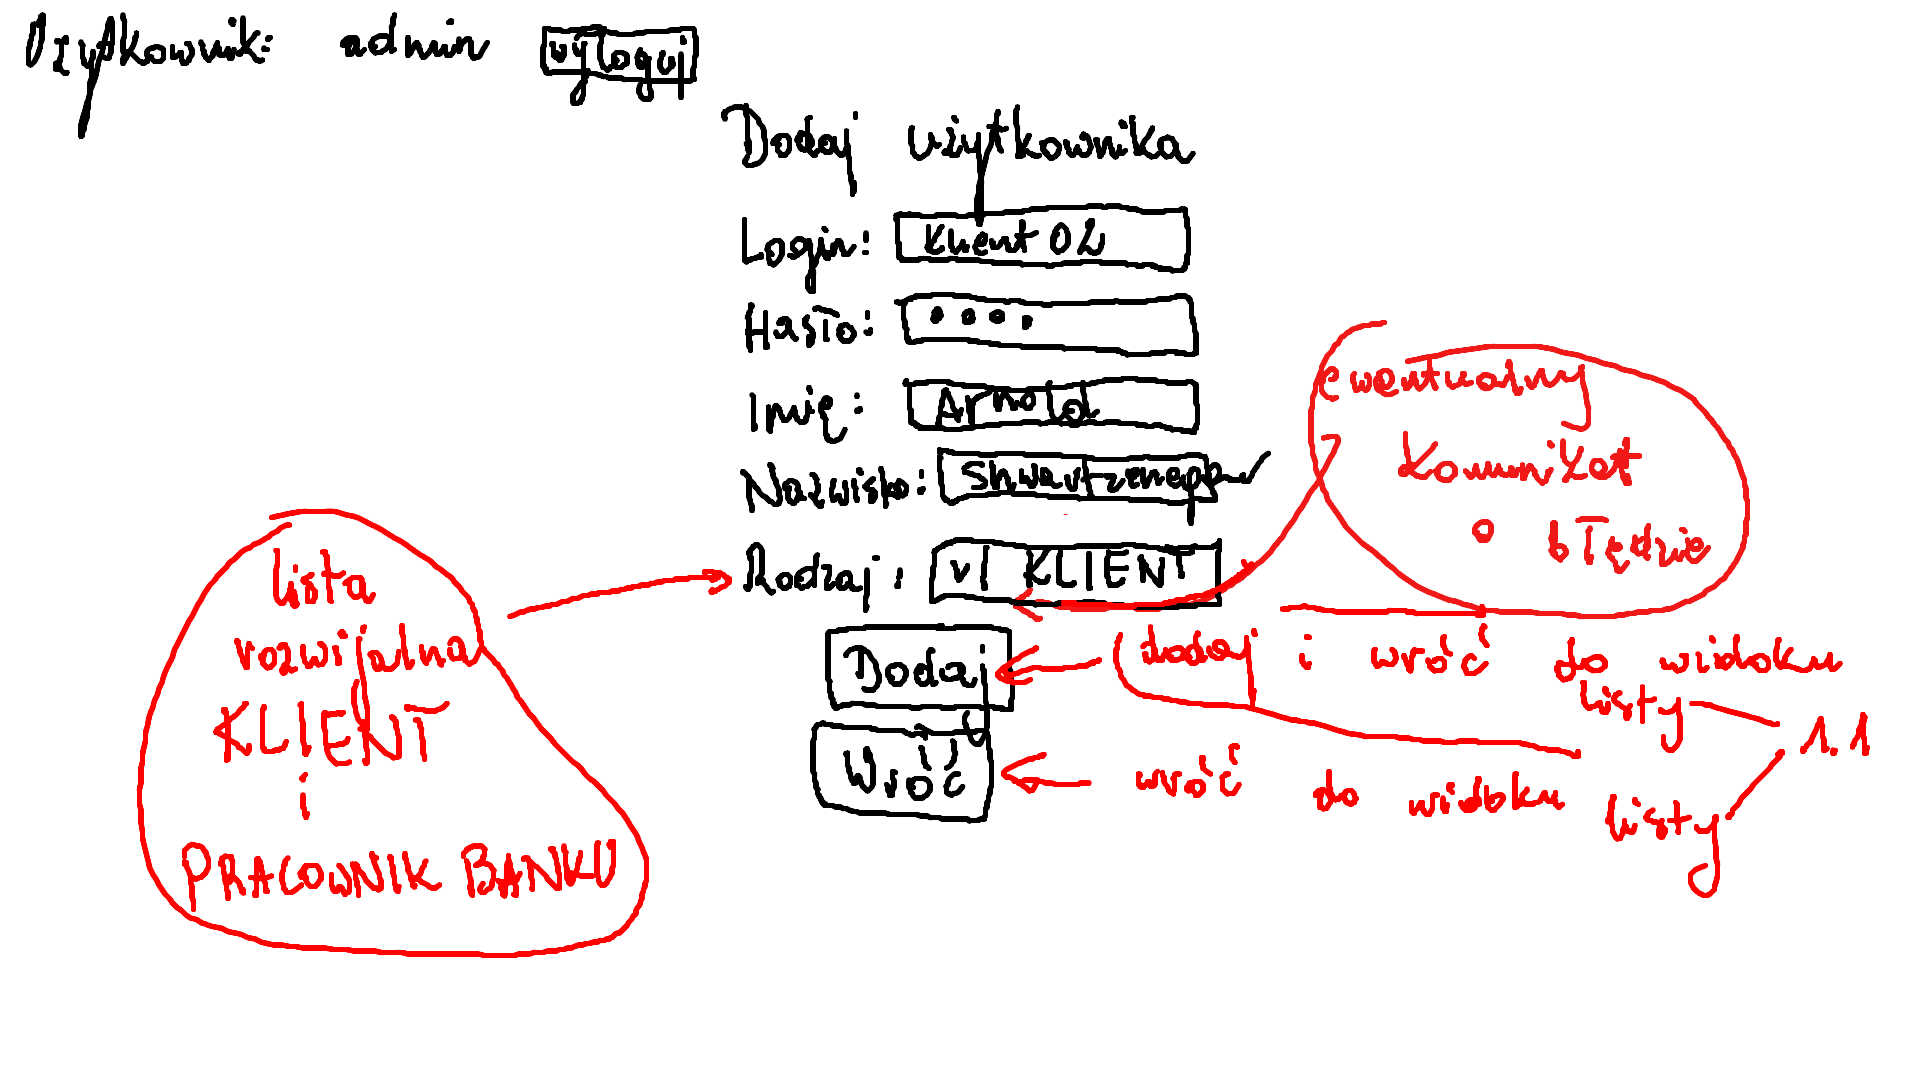 Użytkownik: admin wyloguj
Dodaj użytkownika
Login: Klient 02
Hasło: ••••
Imię: Arnold
Nazwisko: Shwartzneger
Rodzaj: v| KLIENT
Dodaj
Wróć
lista
rozwijalna
KLIENT
i
PRACOWNIK BANKU
ewentualny
komunikat
o błędzie
dodaj i wróć do widoku
listy
1.1
wróć do widoku
listy